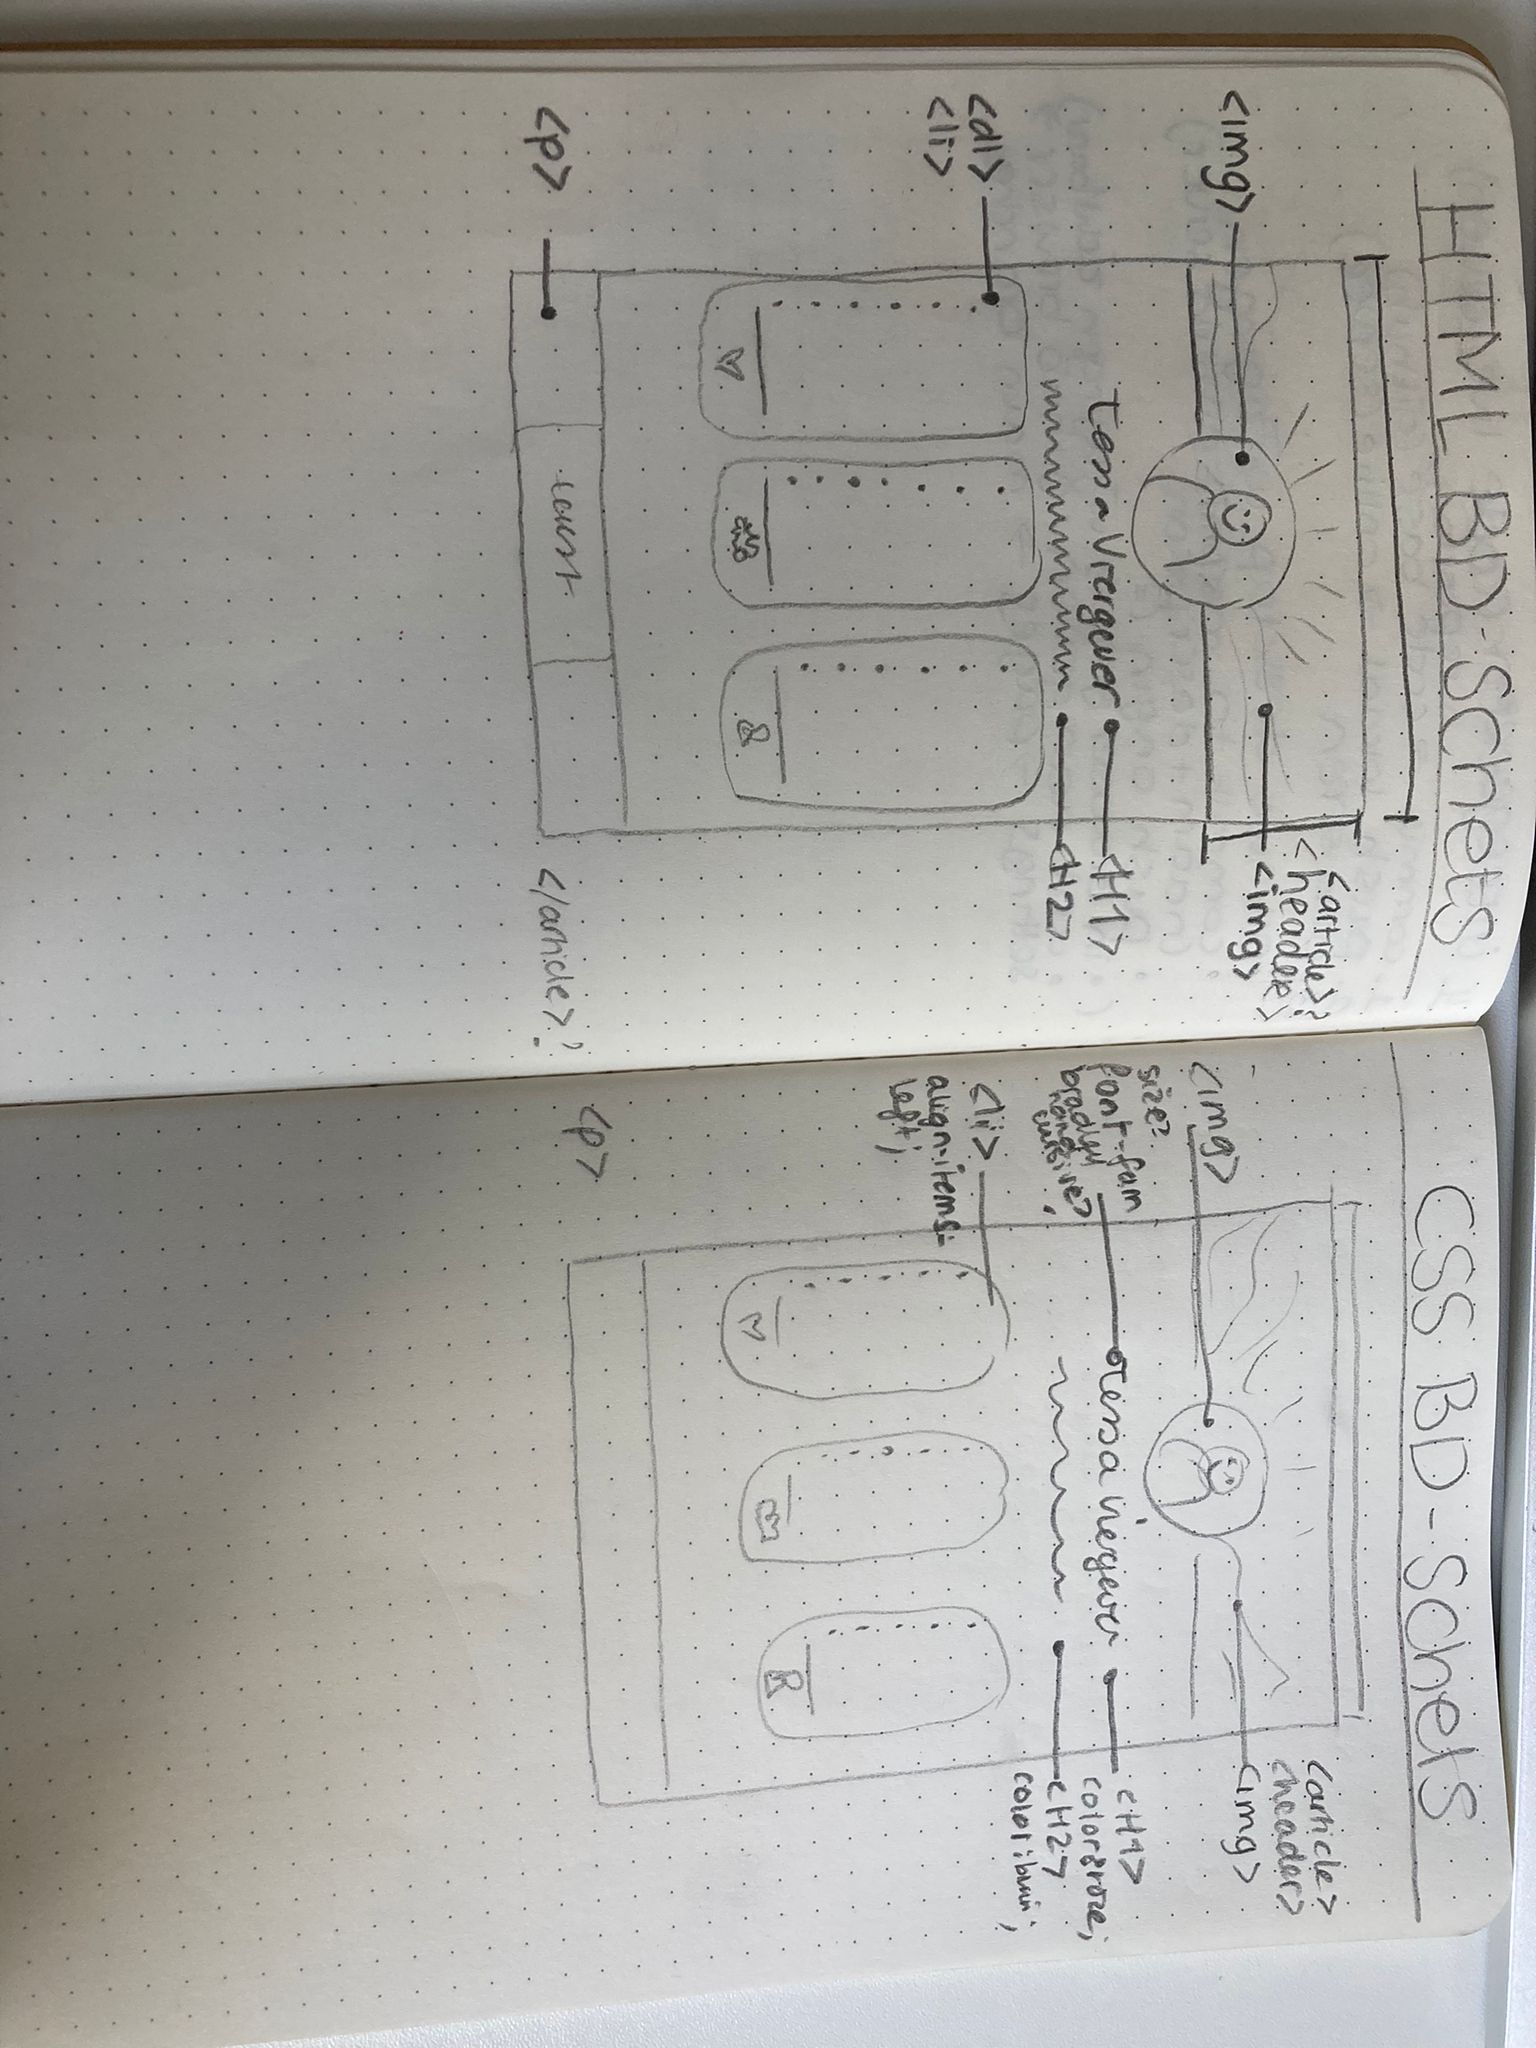 HTML BD-Schets
<article>?
<header>
<img>
<img>
Tessa Vriergever
<H1>
<H2>
<dl>
<li>
<p>
</article>?
CSS BD-Schets
<article>
<header>
<img>
<img>
size?
font-fam
bradley
hand
cursive?
Tessa
<H1>
<H2>
<li>
align-items:
left;
<p>